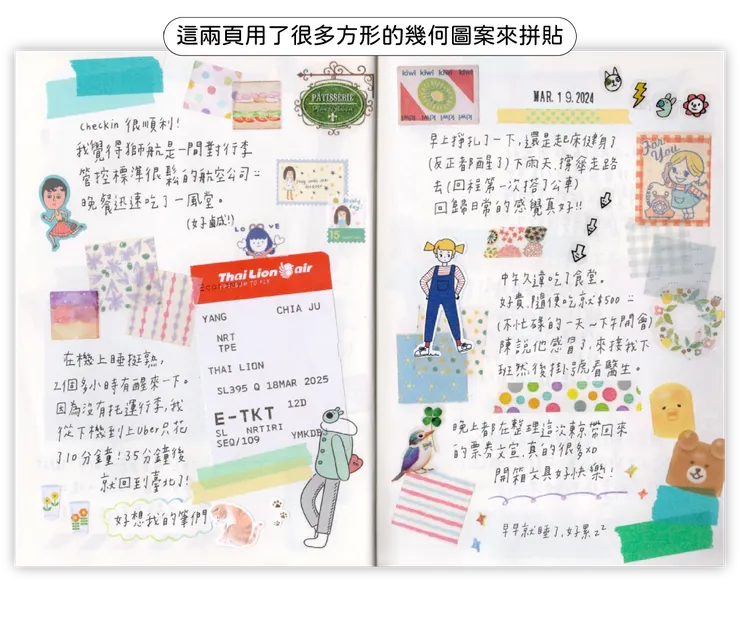 這兩頁用了很多方形的幾何圖案來拼貼
checkin 很順利!
我覺得獅航是一間對行李
管控標準很鬆的航空公司
晚餐迅速吃了一風堂。
(好鹹!!)
PÂTISSERIE
LOVE
15
Thai Lion air
FREEDOM TO FLY
YANG CHIA JU
NRT
TPE
THAI LION
SL395 Q 18MAR 2025
E-TKT 12D
SL NRTIRI
SEQ/109 YMKDB
在機上睡挺熟,
2個多小時有醒來一下。
因為沒有托運行李,我
從下機到上Uber只花
了10分鐘!35分鐘後
就回到臺北了!
好想我的筆們
kiwi kiwi kiwi kiwi
kiwi kiwi kiwi kiwi
MAR. 19. 2024
For You
早上掙扎了一下,還是起床健身了
(反正都醒了)下雨天,撐傘走路
去(回程第一次搭了公車)
回歸日常的感覺真好!!
中午久違吃了食堂。
好貴,隨便吃就$500
(不忙碌的一天~下午開會)
陳說他感冒了,來接我下
班然後掛號看醫生。
晚上都在整理這次東京帶回來
的票券文宣,真的很多xD
開箱文具好快樂!
早早就睡了,好累zZ